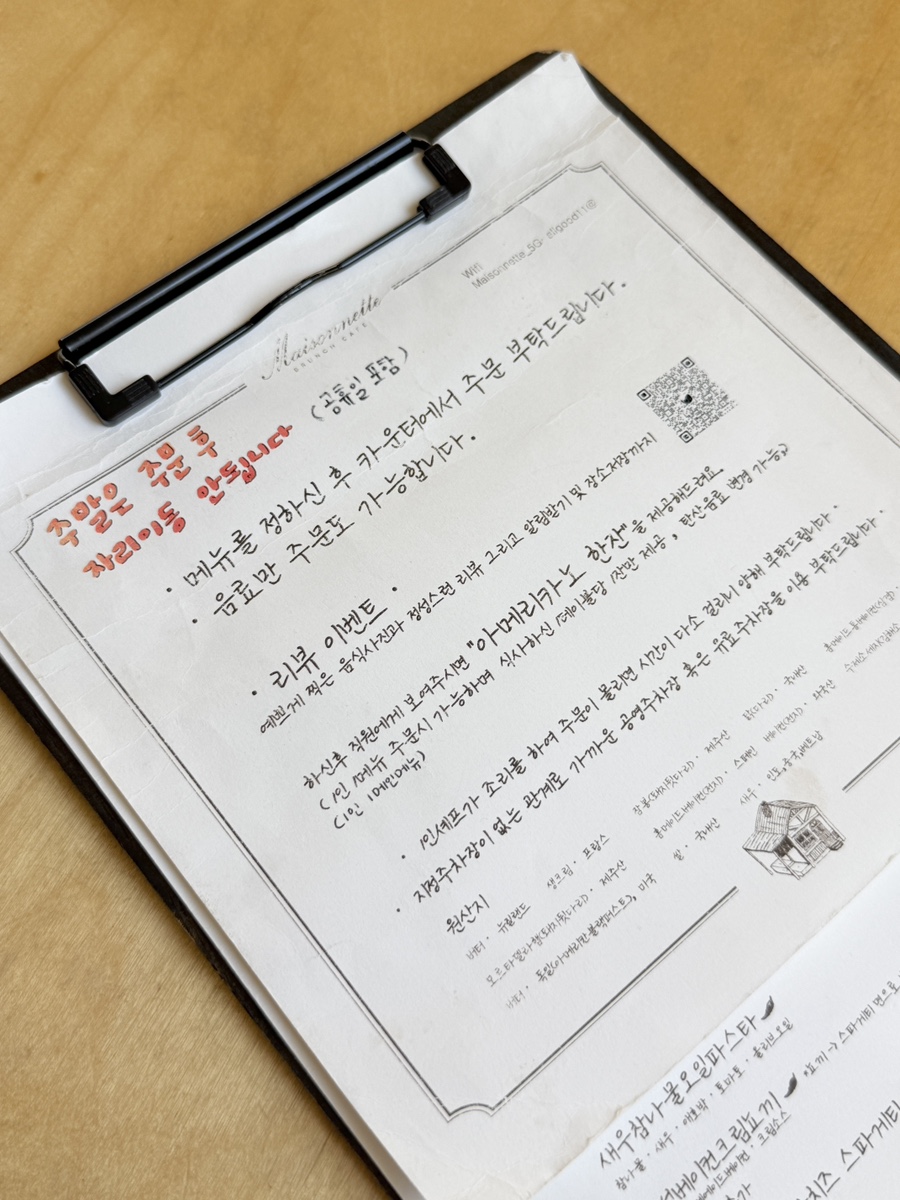 Wifi
Maisonnette_5G-
Maisonnette
BRUNCH CAFE
(공휴일 포함)
주말은 주문 후
자리이동 안됩니다
· 메뉴를 정하신 후 카운터에서 주문 부탁드립니다.
· 음료만 주문도 가능합니다.
· 리뷰 이벤트 ·
예쁘게 찍은 음식사진과 정성스런 리뷰 그리고 알림받기 및 장소저장까지
하신후 직원에게 보여주시면 "아메리카노 한잔"을 제공해드려요.
(1인 1메뉴 주문시 가능하며 식사하신 1테이블당 1잔만 제공, 탄산음료 변경 가능)
(1인 1메인메뉴)
· 1인셰프가 조리를 하여 주문이 몰리면 시간이 다소 걸리니 양해 부탁드립니다.
· 지정주차장이 없는 관계로 가까운 공영주차장 혹은 유료주차장을 이용 부탁드립니다.
원산지
버터 · 뉴질랜드 생크림 · 프랑스 잠봉(돼지뒷다리) · 제주산 닭(다리) · 국내산
모르타델라햄(돼지뒷다리) · 제주산 홈메이드베이컨(전지) · 스페인 베이컨(전지) · 외국산
버터 · 독일(아메리칸블랙퍼스트), 미국 쌀 · 국내산 새우 · 인도,중국,베트남
새우참나물오일파스타
참나물 · 새우 · 애호박 · 토마토 · 올리브오일
베이컨크림뇨끼 *뇨끼 -> 스파게티면으로
크림소스
스파게티